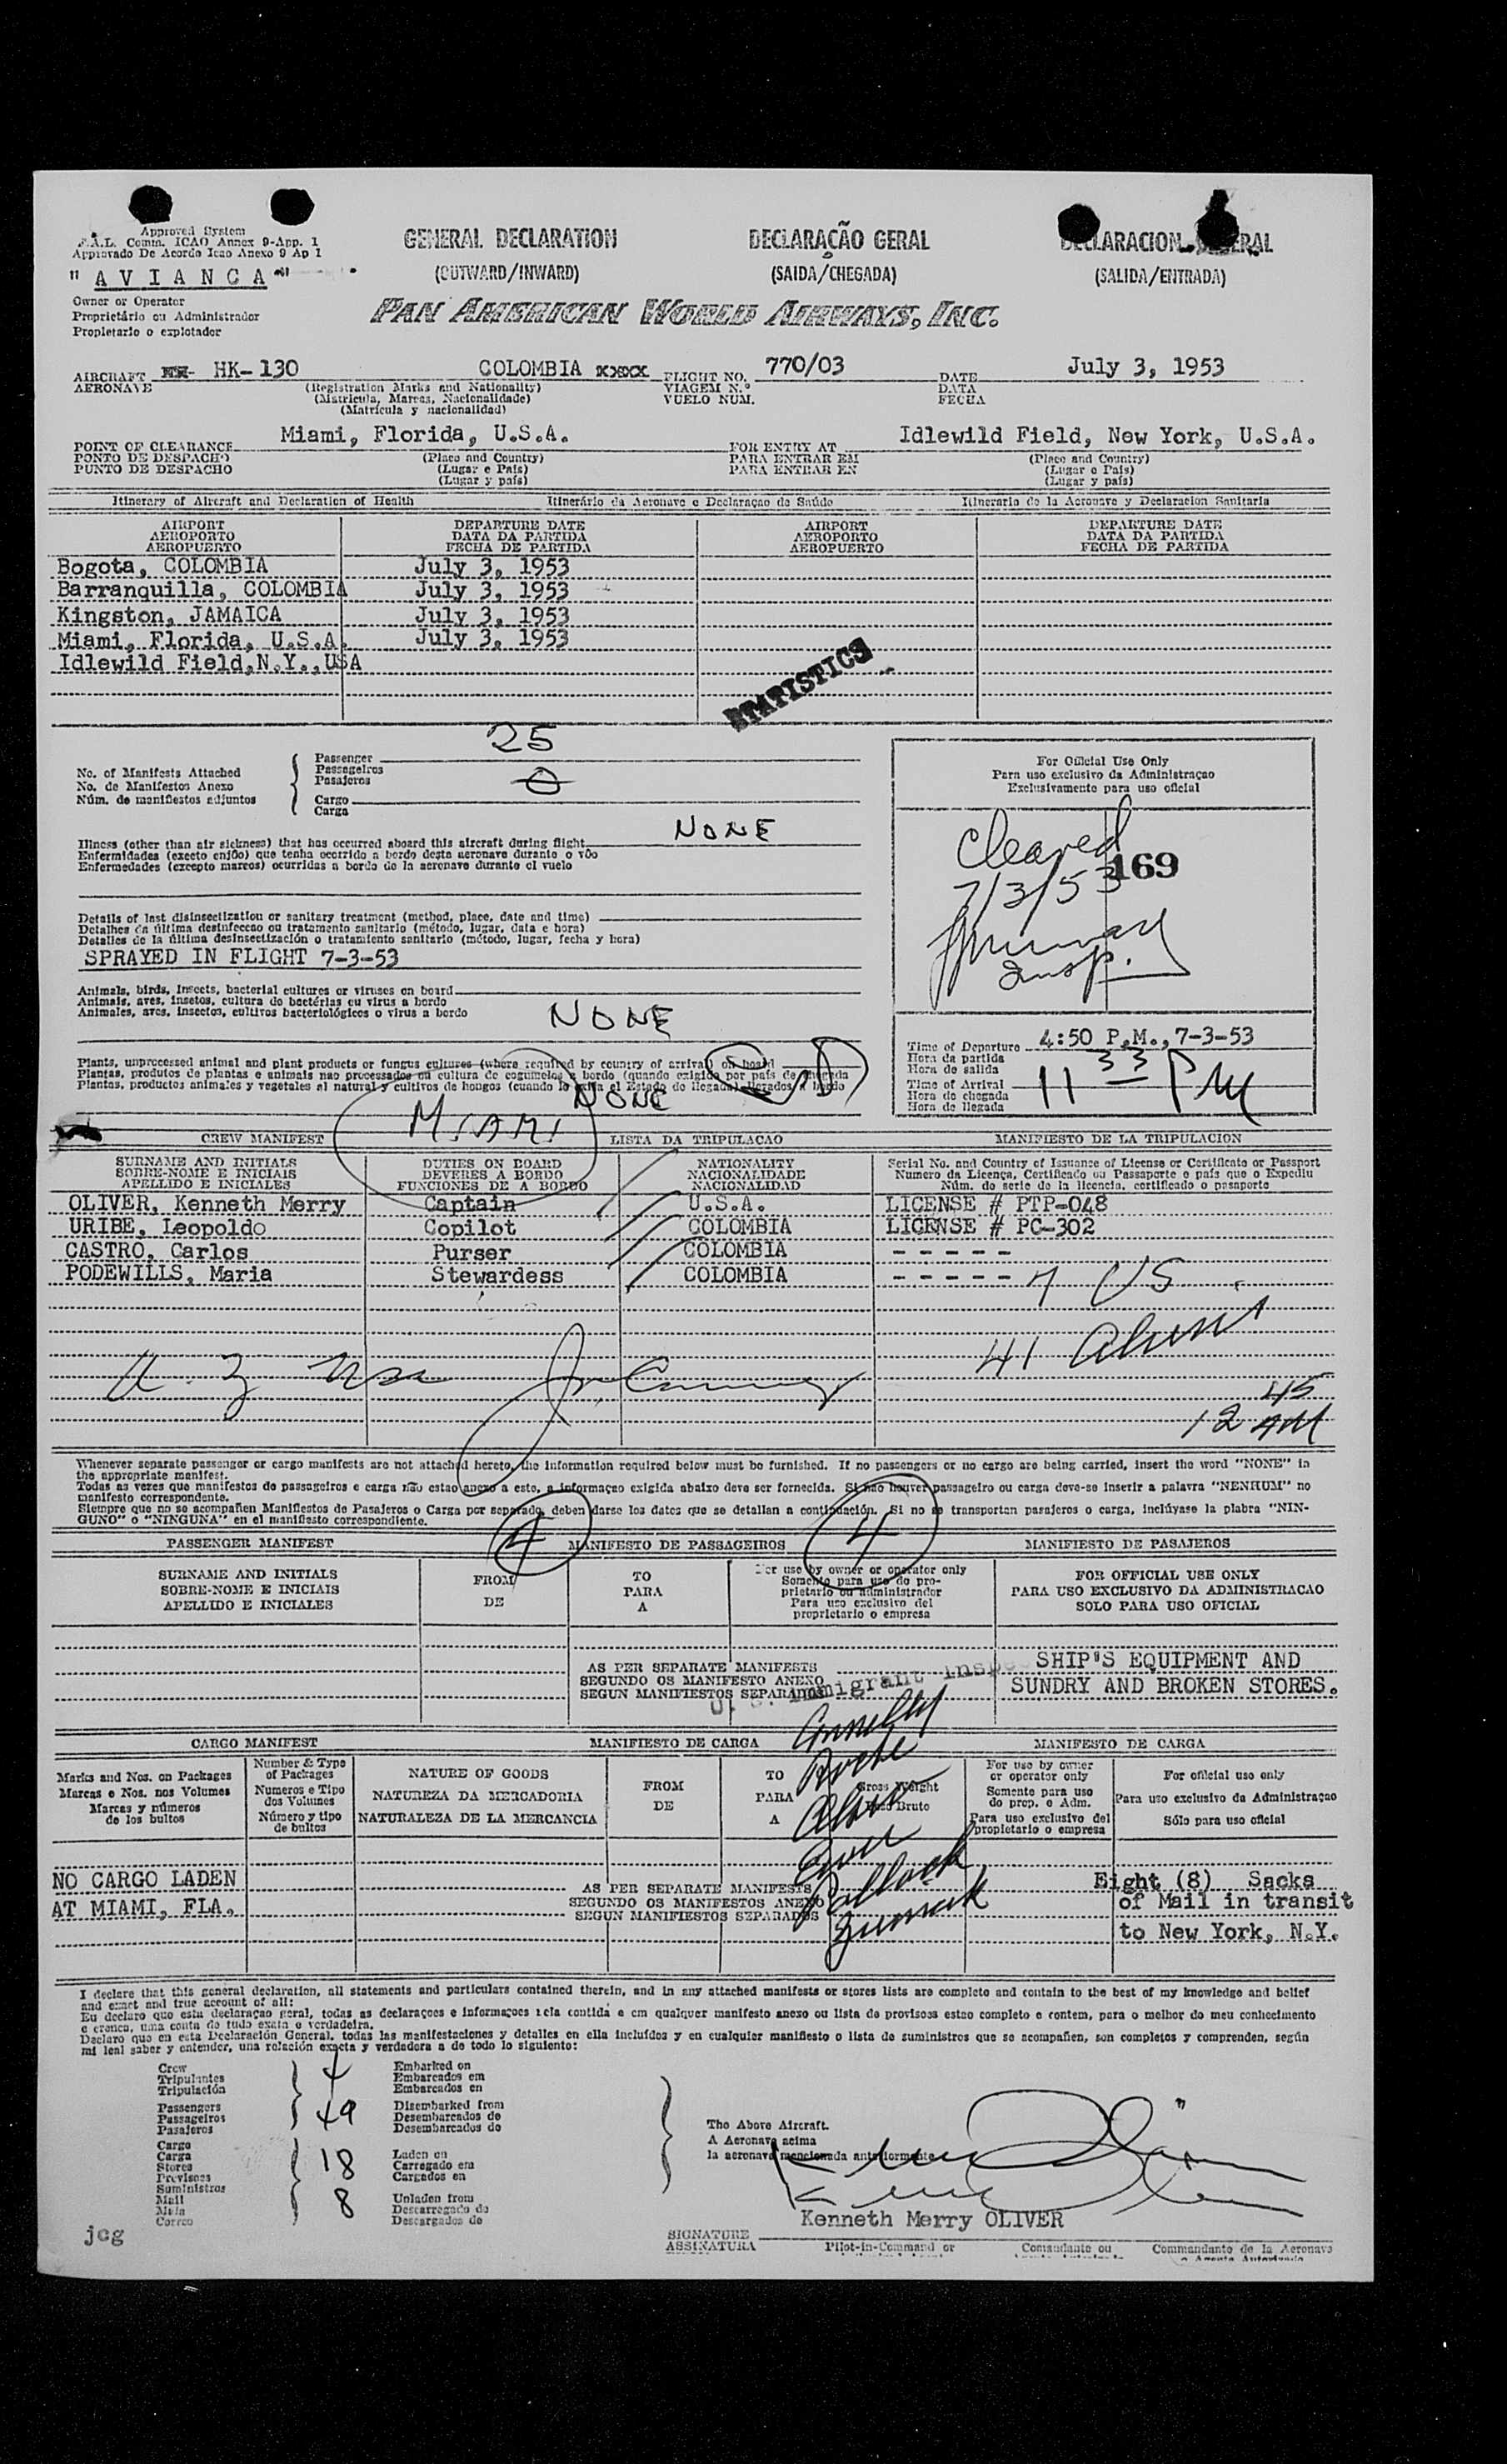 Approved System
F.A.L. Comm. ICAO Annex 9-App. 1
Approvado De Acordo Icao Anexo 9 Ap 1
" A V I A N C A "
Owner or Operator
Proprietário ou Administrador
Propietario o explotador
GENERAL DECLARATION
(OUTWARD/INWARD)
DECLARAÇÃO GERAL
(SAIDA/CHEGADA)
(SALIDA/ENTRADA)
PAN AMERICAN WORLD AIRWAYS, INC.
AIRCRAFT HK-130 COLOMBIA xxxx FLIGHT NO. 770/03 DATE July 3, 1953
AERONAVE (Registration Marks and Nationality) VIAGEM N.º DATA
(Matricula, Marcas, Nacionalidade) VUELO NUM. FECHA
(Matrícula y nacionalidad)
POINT OF CLEARANCE Miami, Florida, U.S.A. FOR ENTRY AT Idlewild Field, New York, U.S.A.
PONTO DE DESPACHO (Place and Country) PARA ENTRAR EM (Place and Country)
PUNTO DE DESPACHO (Lugar e País) PARA ENTRAR EN (Lugar e País)
(Lugar y país) (Lugar y país)
Itinerary of Aircraft and Declaration of Health Itinerário da Aeronave e Declaraçao de Saúde Itinerario de la Aeronave y Declaracion Sanitaria
AIRPORT DEPARTURE DATE AIRPORT DEPARTURE DATE
AEROPORTO DATA DA PARTIDA AEROPORTO DATA DA PARTIDA
AEROPUERTO FECHA DE PARTIDA AEROPUERTO FECHA DE PARTIDA
Bogota, COLOMBIA July 3, 1953
Barranquilla, COLOMBIA July 3, 1953
Kingston, JAMAICA July 3, 1953
Miami, Florida, U.S.A. July 3, 1953
Idlewild Field,N.Y.,USA
STATISTICS
25
No. of Manifests Attached
No. de Manifestos Anexo
Núm. de manifiestos adjuntos
Passenger
Passageiros
Pasajeros
Cargo
Carga
For Official Use Only
Para uso exclusivo da Administraçao
Exclusivamente para uso oficial
Cleared
169
7/3/53
Insp.
NONE
Illness (other than air sickness) that has occurred aboard this aircraft during flight
Enfermidades (exceto enjôo) que tenha ocorrido a bordo desta aeronave durante o vôo
Enfermedades (excepto mareos) ocurridas a bordo de la aeronave durante el vuelo
Details of last disinsectization or sanitary treatment (method, place, date and time)
Detalhes da última desinfeccao ou tratamento sanitario (método, lugar, data e hora)
Detalles de la última desinsectización o tratamiento sanitario (método, lugar, fecha y hora)
SPRAYED IN FLIGHT 7-3-53
Animals, birds, insects, bacterial cultures or viruses on board
Animais, aves, insetos, cultura de bactérias eu virus a bordo
Animales, aves, insectos, cultivos bacteriológicos o virus a bordo
NONE
Plants, unprocessed animal and plant products or fungus cultures (where required by country of arrival) on board
Plantas, produtos de plantas e animais nao processados ou cultura de cogumelos a bordo (quando exigido por país de chegada
Plantas, productos animales y vegetales al natural y cultivos de hongos (cuando lo exija el Estado de llegada) llevados a bordo
NONE
Time of Departure 4:50 P.M., 7-3-53
Hora da partida
Hora de salida
Time of Arrival 11 33 PM
Hora de chegada
Hora de llegada
MIAMI
CREW MANIFEST LISTA DA TRIPULACAO MANIFIESTO DE LA TRIPULACION
SURNAME AND INITIALS DUTIES ON BOARD NATIONALITY Serial No. and Country of Issuance of License or Certificate or Passport
SOBRE-NOME E INICIAIS DEVERES A BORDO NACIONALIDADE Numero da Licença, Certificado ou Passaporte o país que o Expediu
APELLIDO E INICIALES FUNCIONES DE A BORDO NACIONALIDAD Núm. de serie de la licencia, certificado o pasaporte
OLIVER, Kenneth Merry Captain U.S.A. LICENSE # PTP-048
URIBE, Leopoldo Copilot COLOMBIA LICENSE # PC-302
CASTRO, Carlos Purser COLOMBIA - - - - -
PODEWILLS, Maria Stewardess COLOMBIA - - - - -
7 US
41 Aliens
45
12 AM
Whenever separate passenger or cargo manifests are not attached hereto, the information required below must be furnished. If no passengers or no cargo are being carried, insert the word "NONE" in
the appropriate manifest.
Todas as vezes que manifestos de passageiros e carga não estao anexo a este, a informaçao exigida abaixo deve ser fornecida. Si não houver passageiro ou carga deve-se inserir a palavra "NENHUM" no
manifesto correspondente.
Siempre que no se acompañen Manifiestos de Pasajeros o Carga por separado, deben darse los datos que se detallan a continuación. Si no se transportan pasajeros o carga, inclúyase la plabra "NIN-
GUNO" o "NINGUNA" en el manifiesto correspondiente.
4 4
PASSENGER MANIFEST MANIFESTO DE PASSAGEIROS MANIFIESTO DE PASAJEROS
SURNAME AND INITIALS FROM TO For use by owner or operator only FOR OFFICIAL USE ONLY
SOBRE-NOME E INICIAIS DE PARA Somente para uso do pro- PARA USO EXCLUSIVO DA ADMINISTRACAO
APELLIDO E INICIALES A prietario ou administrador SOLO PARA USO OFICIAL
Para uso exclusivo del
proprietario o empresa
AS PER SEPARATE MANIFESTS SHIP'S EQUIPMENT AND
SEGUNDO OS MANIFESTO ANEXO SUNDRY AND BROKEN STORES.
SEGUN MANIFIESTOS SEPARADOS
U. S. Immigrant Inspe
Connelly
Pollack
CARGO MANIFEST MANIFIESTO DE CARGA MANIFESTO DE CARGA
Marks and Nos. on Packages
Marcas e Nos. nos Volumes
Marcas y números
de los bultos
Number & Type
of Packages
Numeros e Tipo
dos Volumes
Número y tipo
de bultos
NATURE OF GOODS
NATUREZA DA MERCADORIA
NATURALEZA DE LA MERCANCIA
FROM
DE
TO
PARA
A
Gross Weight
Peso Bruto
For use by owner
or operator only
Somente para uso
do prop. e Adm.
Para uso exclusivo del
propietario o empresa
For official use only
Para uso exclusivo da Administraçao
Sólo para uso oficial
NO CARGO LADEN
AT MIAMI, FLA.
AS PER SEPARATE MANIFESTS
SEGUNDO OS MANIFESTOS ANEXO
SEGUN MANIFIESTOS SEPARADOS
Eight (8) Sacks
of Mail in transit
to New York, N.Y.
I declare that this general declaration, all statements and particulars contained therein, and in any attached manifests or stores lists are complete and contain to the best of my knowledge and belief
and exact and true account of all:
Eu declaro que esta declaraçao geral, todas as declaraçoes e informaçoes nela contida e em qualquer manifesto anexo ou lista de provisoes estao completo e contem, para o melhor do meu conhecimento
e crenca, uma conta de tudo exata e verdadeira.
Declaro que en esta Declaración General, todas las manifestaciones y detalles en ella incluídos y en cualquier manifiesto o lista de suministros que se acompañen, son completos y comprenden, según
mi leal saber y entender, una relación exacta y verdadera a de todo lo siguiente:
Crew
Tripulantes
Tripulación
4
Embarked on
Embarcados em
Embarcados en
Passengers
Passageiros
Pasajeros
49
Disembarked from
Desembarcados de
Desembarcados de
Cargo
Carga
Stores
Previsoes
Suministros
18
Laden on
Carregado em
Cargados en
Mail
Mala
Correo
8
Unladen from
Descarregado de
Descargados de
The Above Aircraft.
A Aeronave acima
la aeronave mencionada anteriormente
Kenneth Merry OLIVER
jcg
SIGNATURE
ASSINATURA
Pilot-in-Command or Comandante ou Commandante de la Aeronave